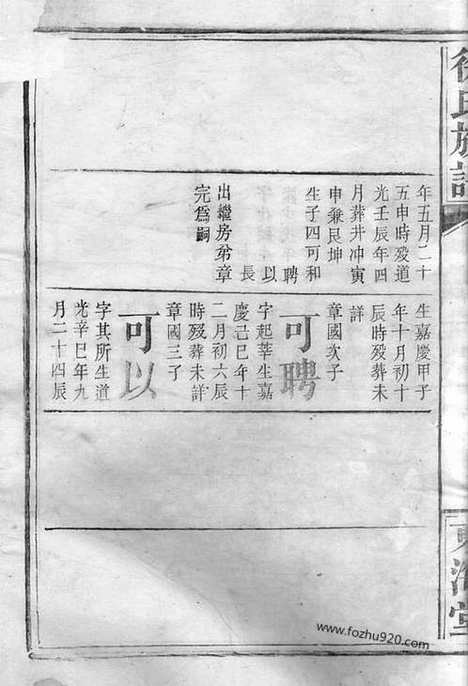 徐氏族譜
東海堂
年五月二十
五申時殁道
光壬辰年四
月葬井冲寅
申兼艮坤
生子四可和
聘
以
長
出繼房弟章
完爲嗣
生嘉慶甲子
年十月初十
辰時殁葬未
詳
章國次子
可聘
字起莘生嘉
慶己巳年十
二月初六辰
時殁葬未詳
章國三子
可以
字其所生道
光辛巳年九
月二十四辰
www.fozhu920.com